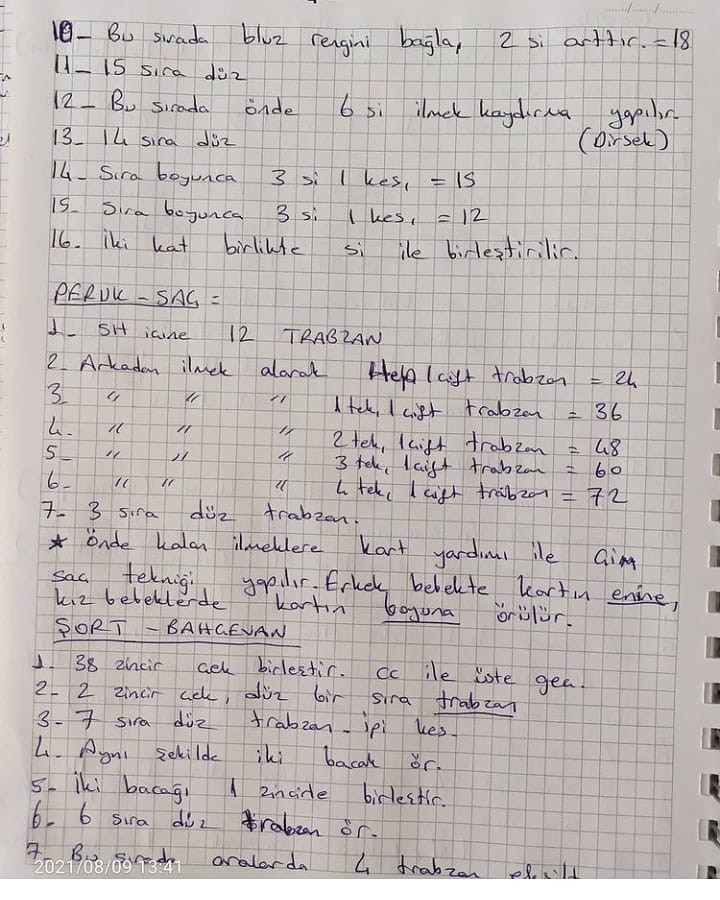 10- Bu sırada bluz rengini bağla, 2 si arttır. = 18
11- 15 sıra düz
12- Bu sırada önde 6 si ilmek kaydırma yapılır
(Dirsek)
13- 14 sıra düz
14- Sıra boyunca 3 si 1 kes, = 15
15- Sıra boyunca 3 si 1 kes, = 12
16. İki kat birlikte si ile birleştirilir.
PERUK - SAÇ =
1- SH içine 12 TRABZAN
2- Arkadan ilmek alarak Hep 1 çift trabzan = 24
3 " " " 1 tek, 1 çift trabzan = 36
4. " " " 2 tek, 1 çift trabzan = 48
5- " " " 3 tek, 1 çift trabzan = 60
6- " " " 4 tek, 1 çift trabzan = 72
7- 3 sıra düz trabzan.
* önde kalan ilmeklere kart yardımı ile çim
saç tekniği yapılır. Erkek bebekte kartın enine,
kız bebeklerde kartın boyuna örülür.
ŞORT - BAHÇEVAN
1. 38 zincir çek birleştir. cc ile üste geç.
2- 2 zincir çek, düz bir sıra trabzan
3- 7 sıra düz trabzan - ipi kes.
4. Aynı şekilde iki bacak ör.
5- İki bacağı 1 zincirle birleştir.
6. 6 sıra düz trabzan ör.
7- Bu sırada aralarda 4 trabzan
2021/08/09 13:41